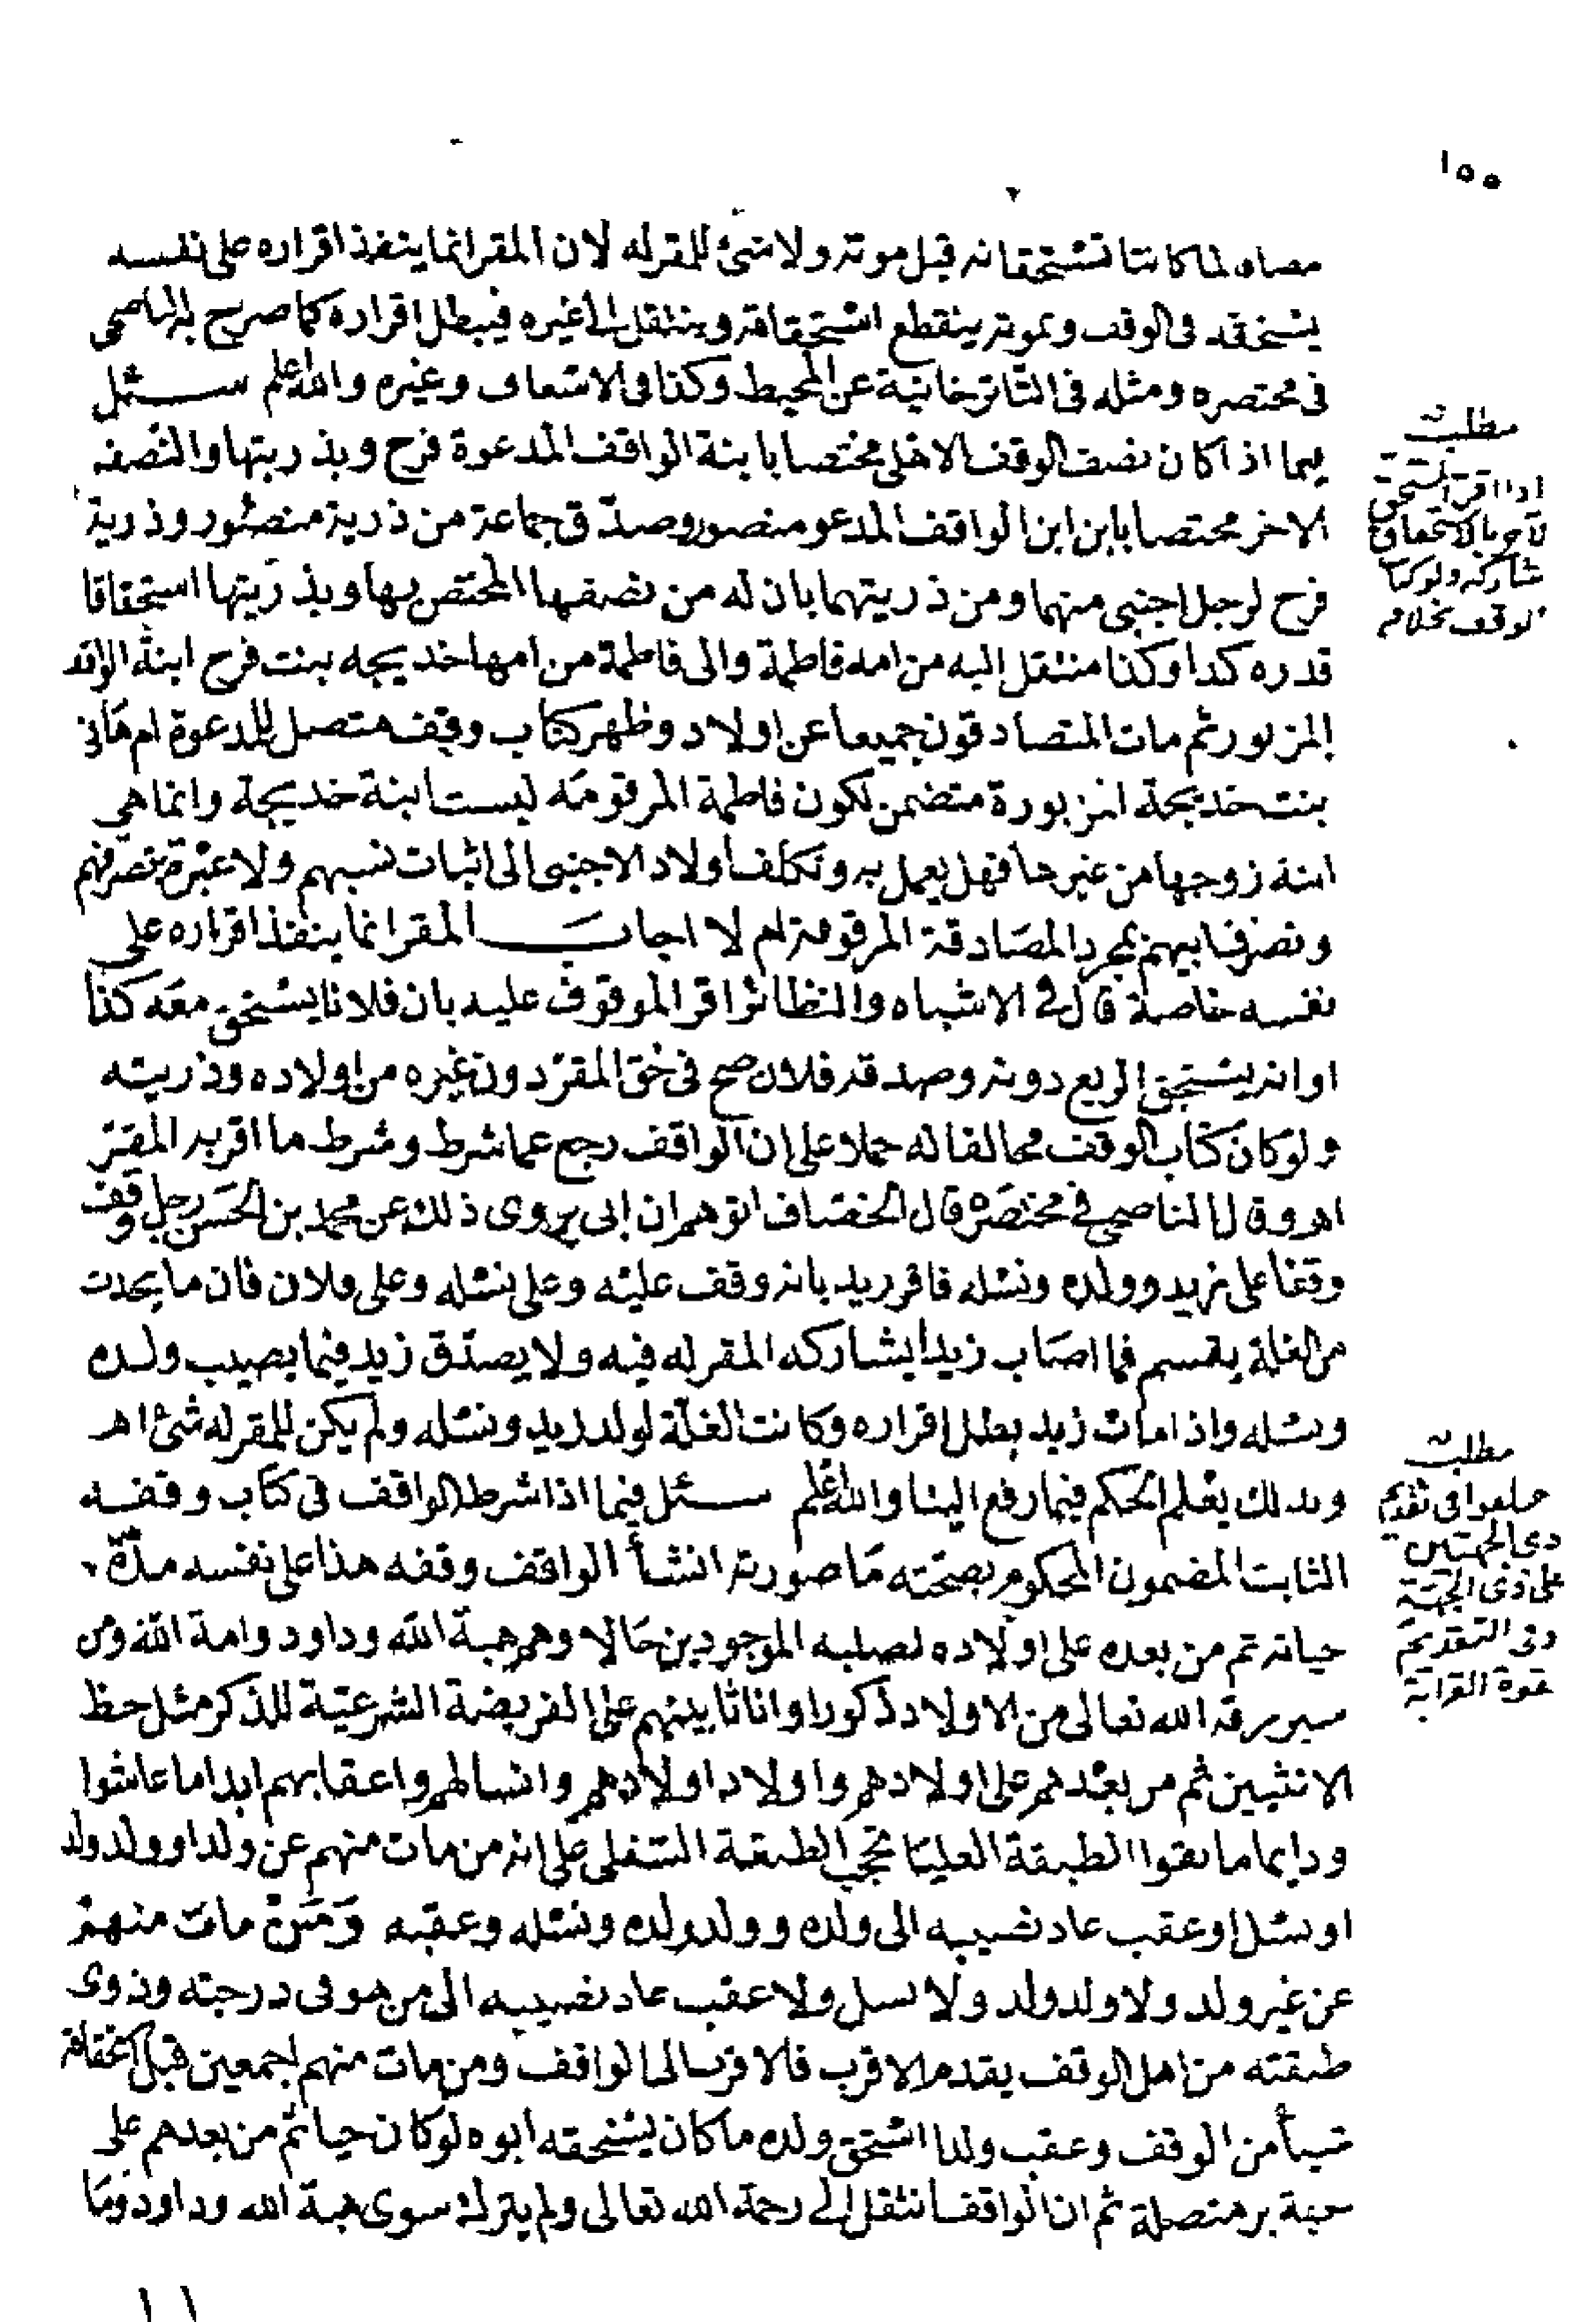 ١٥٥
لما كانتا تستحقانه قبل موته ولا شئ للمقر له لان المقر انما ينفذ اقراره على نفسه
في الوقف وبموته ينقطع استحقاقه وينتقل الى غيره فيبطل اقراره كما صرح به الناصحى
فى مختصره ومثله فى التاترخانية عن المحيط وكذا فى الاسعاف وغيره والله اعلم سئل
فيما اذا كان نصف الوقف الاهلى مختصا بابنة الواقف المدعوة فرح وبذريتها والنصف
الاخر مختصا بابن ابن الواقف المدعو منصور وصدق جماعة من ذرية منصور وذرية
فرح لرجل اجنبى منهما ومن ذريتهما بان له من نصفها المختص بها وبذريتها استحقاقا
قدره كذا وكذا منتقل اليه من امه فاطمة والى فاطمة من امها خديجه بنت فرح ابنة الواقف
المزبور ثم مات المتصادقون جميعا عن اولاد وظهر كتاب وقف متصل للمدعوة ام هانى
بنت خديجة المزبورة متضمن لكون فاطمة المرقومه ليست ابنة خديجة وانما هي
ابنة زوجها من غيرها فهل يعمل به وتكلف اولاد الاجنبى الى اثبات نسبهم ولا عبرة بتصرفهم
وتصرف ابيهم بمجرد المصادقة المرقومة ام لا اجاب المقر انما ينفذ اقراره على
نفسه خاصة قال فى الاشباه والنظائر اقر الموقوف عليه بان فلانا يستحق معه كذا
او انه يستحق الريع دونه وصدقه فلان صح فى حق المقر دون غيره من اولاده وذريته
ولو كان كتاب الوقف مخالفا له حملا على ان الواقف رجع عما شرط وشرط ما اقر به المقر
اهـ وقال الناصحى في مختصره قال الخصاف اتوهم ان ابى يروى ذلك عن محمد بن الحسن رجل وقف
وقفا على زيد وولده ونسله فاقر زيد بانه وقف عليه وعلى نسله وعلى فلان فان ما يحدث
من الغلة يقسم فما اصاب زيدا يشاركه المقر له فيه ولا يصدق زيد فيما يصيب ولده
ونسله واذا مات زيد بطل اقراره وكانت الغلة لولد زيد ونسله ولم يكن للمقر له شئ اهـ
وبذلك يعلم الحكم فيما رفع الينا والله اعلم سئل فيما اذا شرط الواقف فى كتاب وقفه
الثابت المضمون المحكوم بصحته ما صورته انشأ الواقف وقفه هذا على نفسه مدة
حياته ثم من بعده على اولاده لصلبه الموجودين حالا وهم هبة الله وداود وامة الله ومن
سيرزقه الله تعالى من الاولاد ذكورا واناثا بينهم على الفريضة الشرعية للذكر مثل حظ
الانثيين ثم من بعدهم على اولادهم واولاد اولادهم وانسالهم واعقابهم ابدا ما عاشوا
ودايما ما بقوا الطبقة العليا تحجب الطبقة السفلى على انه من مات منهم عن ولد او ولد ولد
او نسل او عقب عاد نصيبه الى ولده وولد ولده ونسله وعقبه ومن مات منهم
عن غير ولد ولا ولد ولد ولا نسل ولا عقب عاد نصيبه الى من هو فى درجته وذوى
طبقته من اهل الوقف يقدم الاقرب فالاقرب الى الواقف ومن مات منهم اجمعين قبل استحقاقه
شيأ من الوقف وعقب ولدا استحق ولده ما كان يستحقه ابوه لو كان حيا ثم من بعدهم على
بر متصلة ثم ان الواقف انتقل الى رحمة الله تعالى ولم يترك سوى هبة الله وداود وما
مطلب
اذا اقر المستحق
لآخر بالاستحقاق
شاركه ولو كتاب
الوقف بخلافه
مطلب
فى تقديم
ذى الجهتين
على ذى الجهة
وفى التقديم
بقوة القرابة